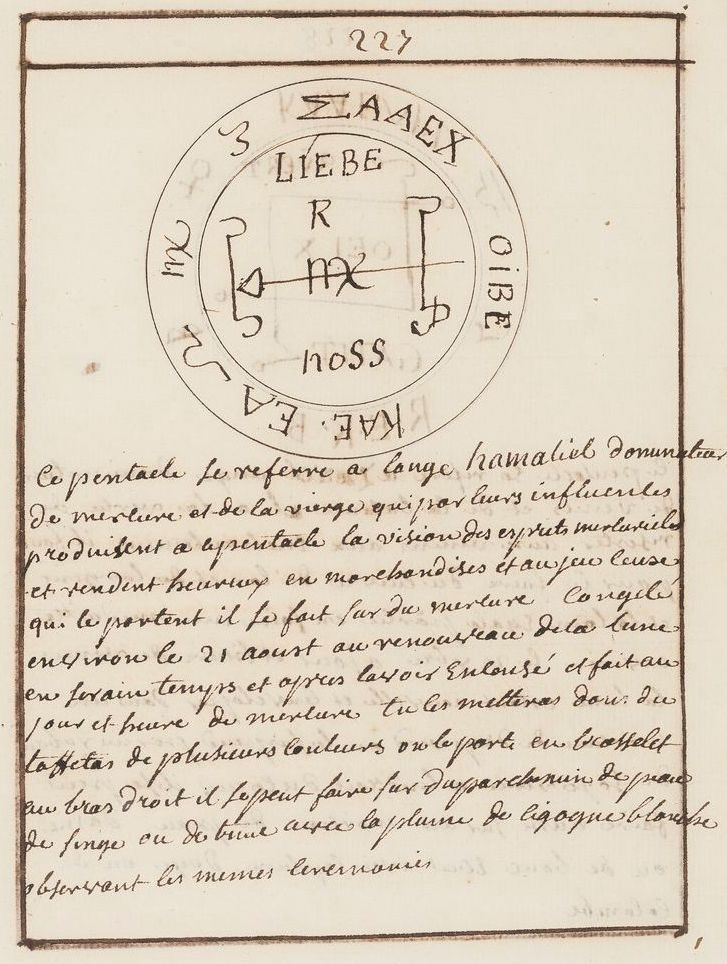 227
ΣΑΑΕΧ
OiBE
KAE. EA
LIEBE
R
♍
noSS
Ce pentacle se referre a lange hamaliel dominateur
de mercure et de la vierge qui par leurs influences
produisent a ce pentacle la vision des esprits mercuriels
et rendent heureux en marchandises et au jeu ceux
qui le portent il se fait sur du mercure congelé
environ le 21 aoust au renouveau de la lune
en serain temps et apres lavoir Enlousé et fait au
jour et heure de mercure tu les metteras dans du
taffetas de plusieurs couleurs ou le porte en brasselet
au bras droit il se peut faire sur du parchemin de peau
de singe ou de avec la plume de cigogne blanche
observant les memes ceremonies